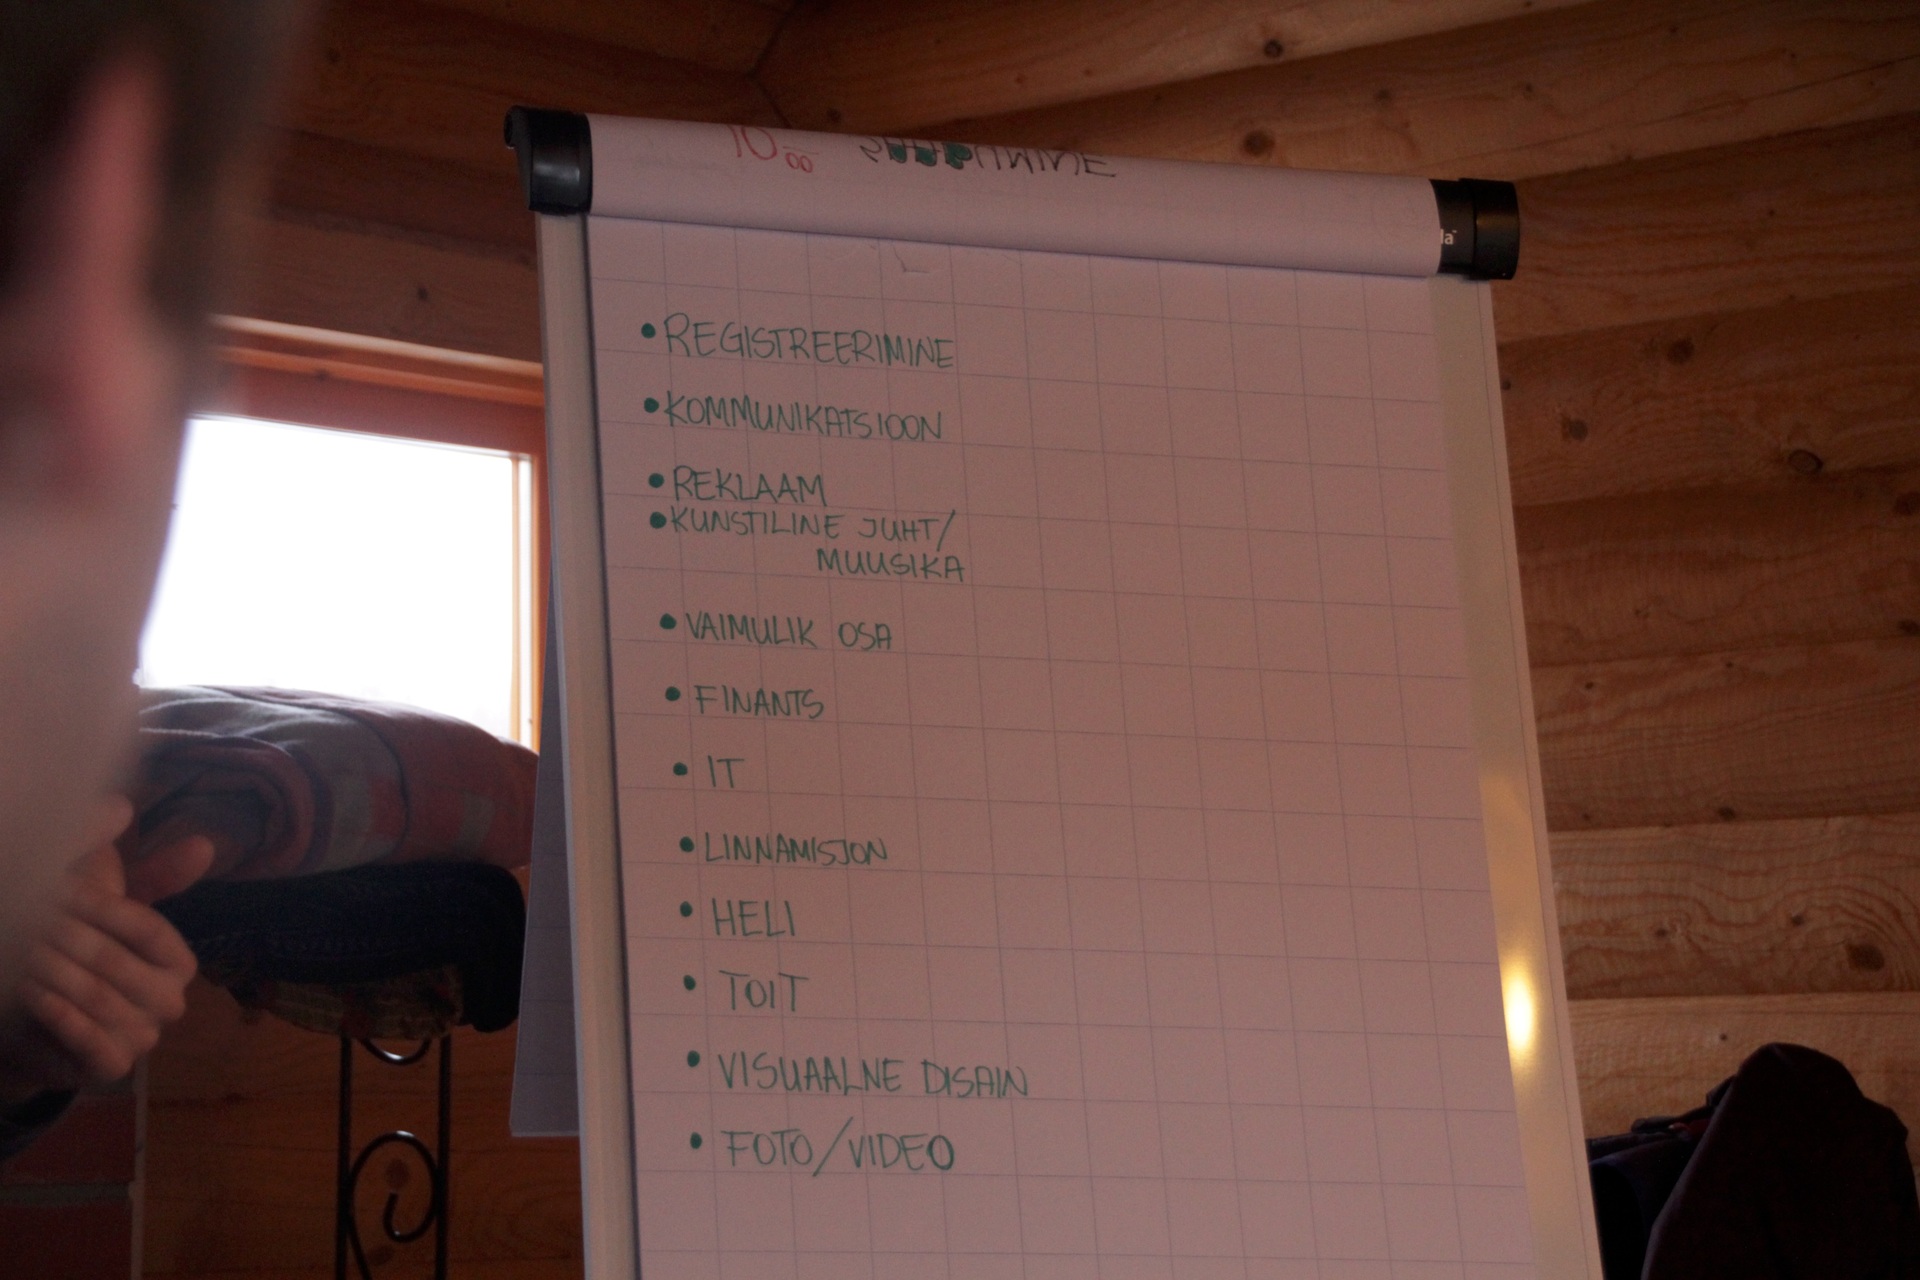 10 00
• REGISTREERIMINE
• KOMMUNIKATSIOON
• REKLAAM
• KUNSTILINE JUHT/
MUUSIKA
• VAIMULIK OSA
• FINANTS
• IT
• LINNAMISJON
• HELI
• TOIT
• VISUAALNE DISAIN
• FOTO/VIDEO